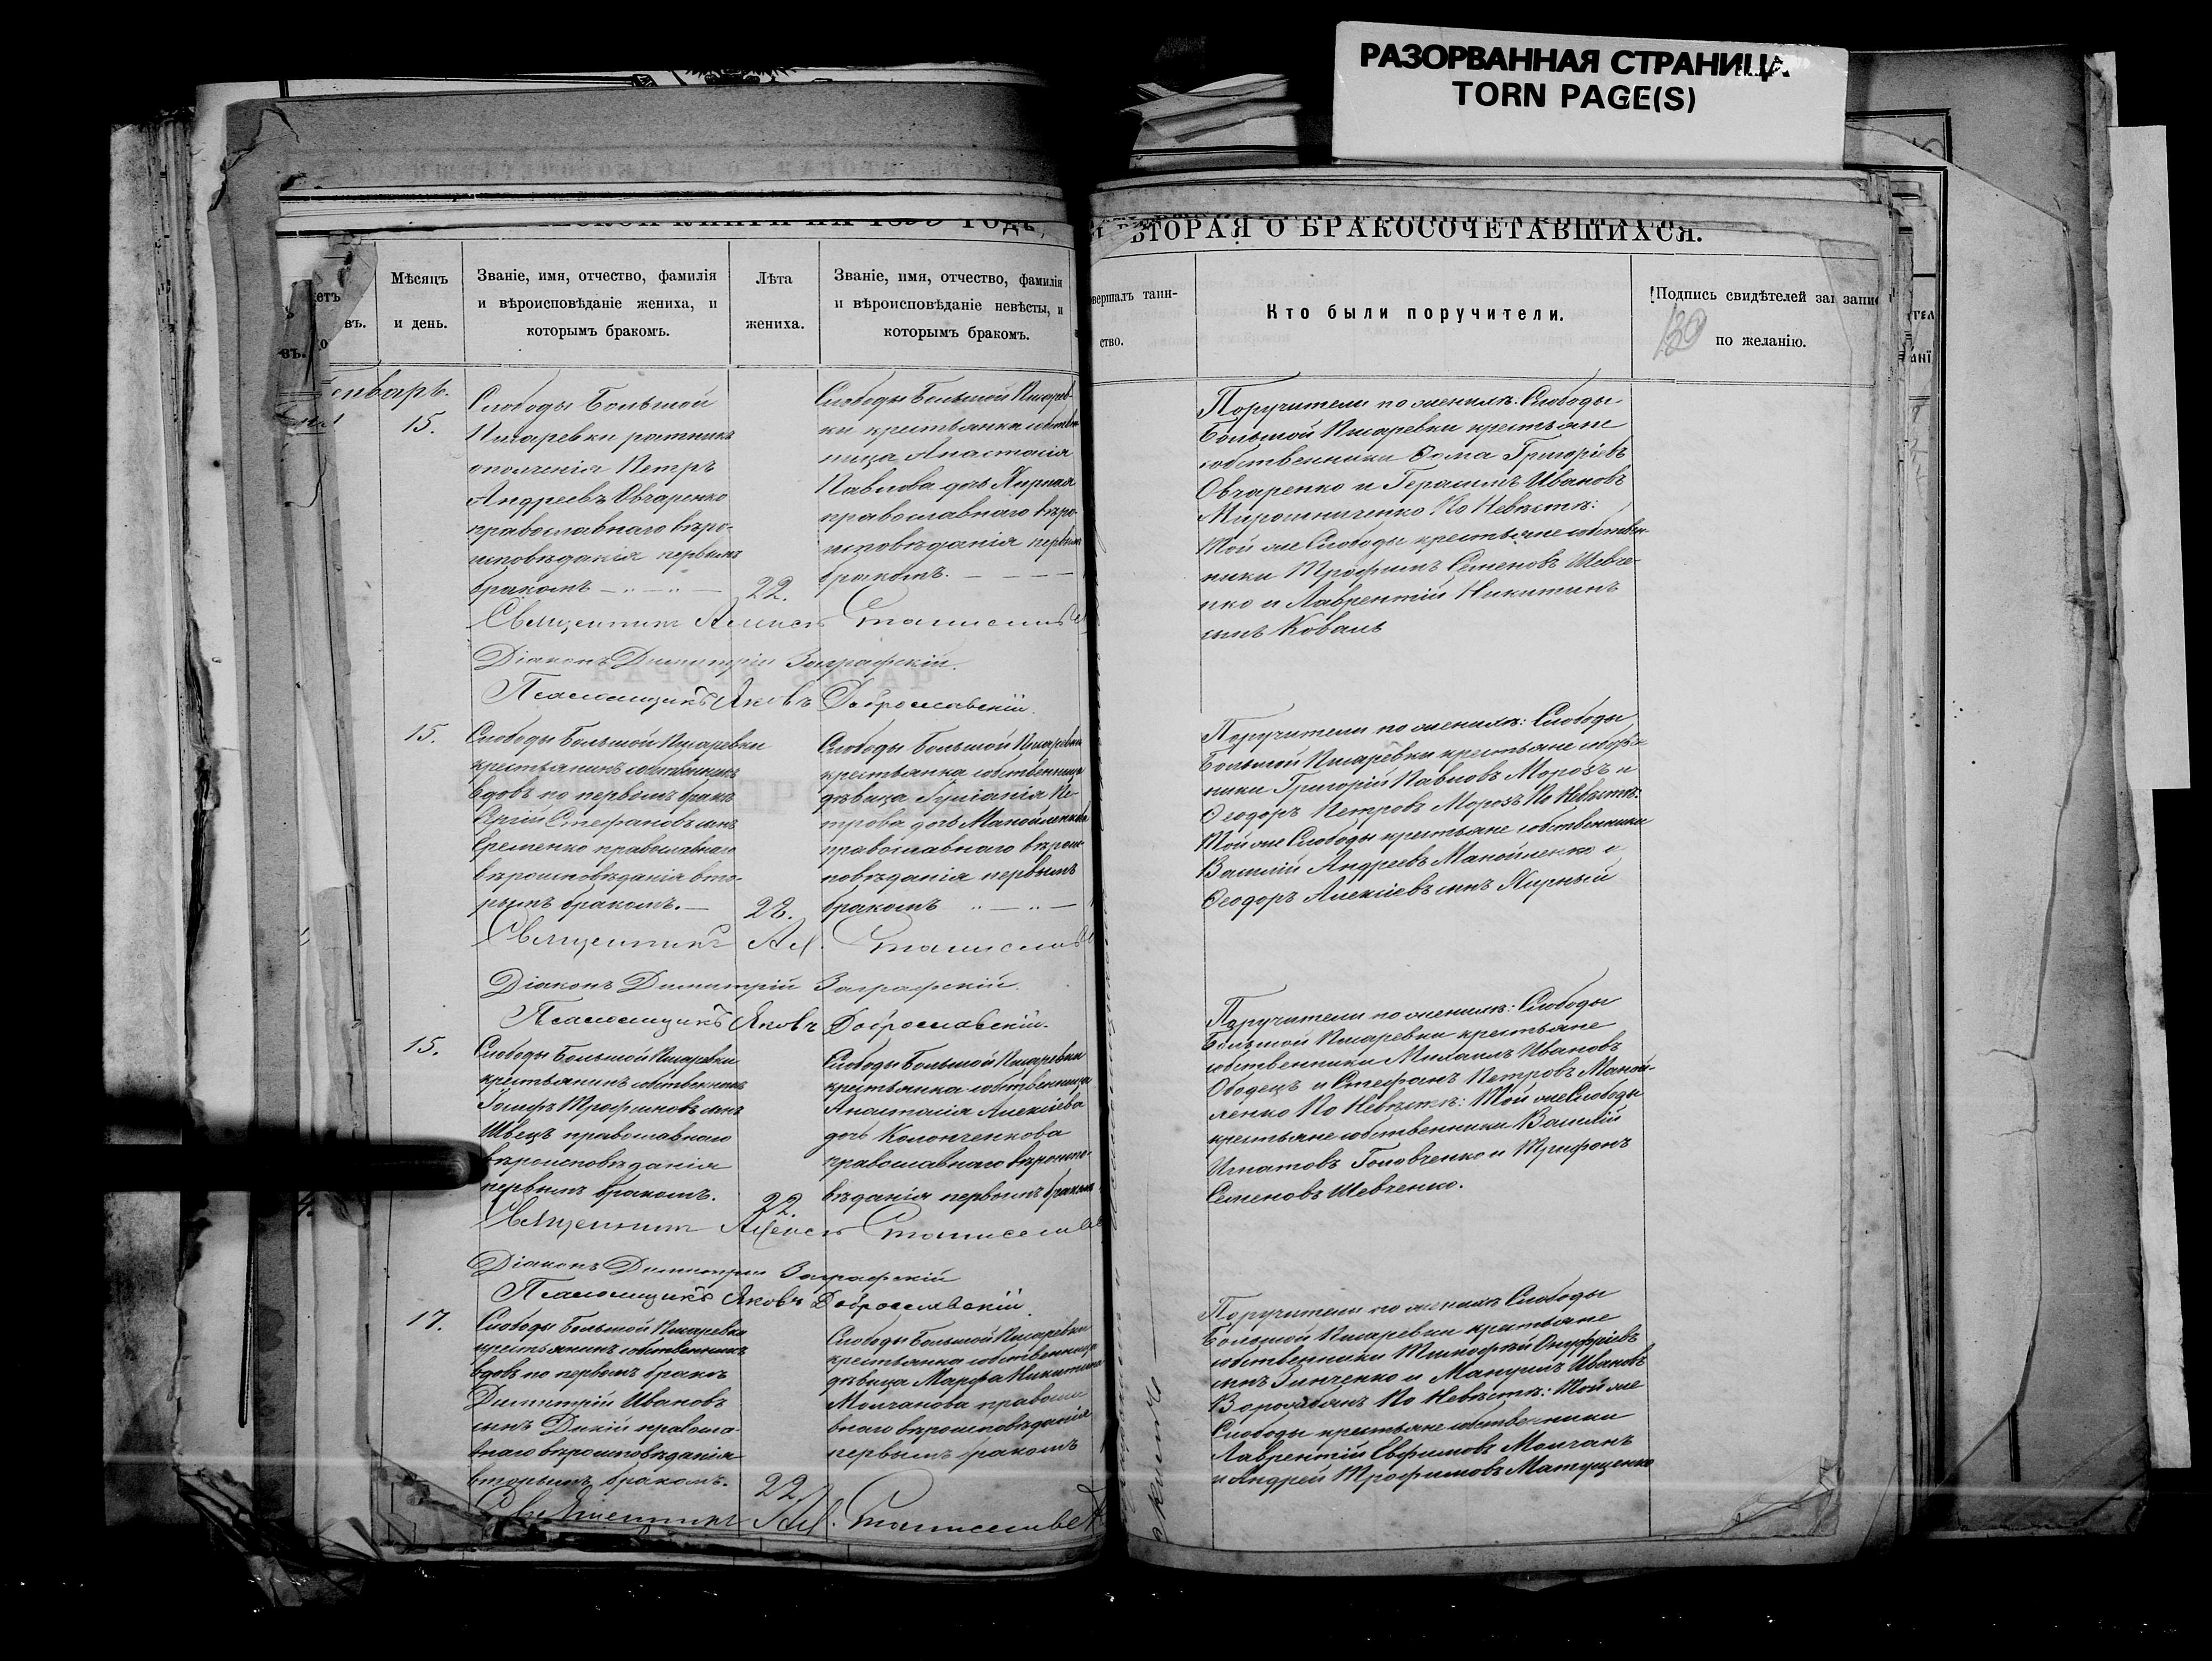 РАЗОРВАННАЯ СТРАНИЦА
TORN PAGE(S)
ВТОРАЯ О БРАКОСОЧЕТАВШИХСЯ.
Мѣсяцъ
и день.
Званіе, имя, отчество, фамилія
и вѣроисповѣданіе жениха, и
которымъ бракомъ.
Лѣта
жениха.
Званіе, имя, отчество, фамилія
и вѣроисповѣданіе невѣсты, и
которымъ бракомъ.
ство.
Кто были поручители.
Подпись свидѣтелей
по желанію.
130
15.
Слободы Большой
Писаревки ратникъ
ополченія Петръ
Андреевъ Овчаренко
православнаго вѣро-
исповѣданія первымъ
бракомъ
22.
Слободы Большой Писарев-
ки крестьянка собствен
ница Анастасія
Павлова дочь Жирная
православнаго вѣро-
исповѣданія первымъ
бракомъ.
Поручители по женихѣ: Слободы
Большой Писаревки крестьяне
собственники Ѳома Григоріевъ
Овчаренко и Герасимъ Ивановъ
Мирошниченко По Невѣстѣ:
Той же Слободы крестьяне собствен-
ники Трофимъ Семеновъ Шевче-
нко и Лаврентій Никитинъ
сынъ Коваль
Священникъ Алексѣй
Діаконъ Димитрій Заграфскій.
Псаломщикъ Яковъ Доброславскій.
15.
Слободы Большой Писаревки
крестьянинъ собственникъ
вдовъ по первомъ бракѣ
Сергій Стефановъ сынъ
Еременко православнаго
вѣроисповѣданія вто-
рымъ бракомъ.
28.
Слободы Большой Писаревки
крестьянка собственница
дѣвица Іуліанія Пе-
трова дочь Манойленкова
православнаго вѣроис-
повѣданія первымъ
бракомъ
Поручители по женихѣ: Слободы
Большой Писаревки крестьяне собств
ники Григорій Павловъ Морозъ и
Ѳеодоръ Петровъ Морозъ По Невѣстѣ:
Той же Слободы крестьяне собственники
Василій Андреевъ Манойленко и
Ѳеодоръ Алексіевъ сынъ Жирный
Священникъ Ал.
Діаконъ Димитрій Заграфскій.
Псаломщикъ Яковъ Доброславскій.
15.
Слободы Большой Писаревки
крестьянинъ собственникъ
Іосифъ Трофимовъ сынъ
Швецъ православнаго
вѣроисповѣданія
первымъ бракомъ.
22.
Слободы Большой Писаревки
крестьянка собственница
Анастасія Алексіева
дочь Колопченкова
православнаго вѣроиспо-
вѣданія первымъ бракомъ
Поручители по женихѣ: Слободы
Большой Писаревки крестьяне
собственники Михаилъ Ивановъ
Ободецъ и Стефанъ Петровъ Маной-
ленко По Невѣстѣ: Той же Слободы
крестьяне собственники Василій
Игнатовъ Головченко и Трифонъ
Семеновъ Шевченко.
Священникъ Алексѣй
Діаконъ Димитрій Заграфскій
Псаломщикъ Яковъ Доброславскій.
17.
Слободы Большой Писаревки
крестьянинъ собственникъ
вдовъ по первомъ бракѣ
Димитрій Ивановъ
сынъ Дикій правосла-
внаго вѣроисповѣданія
вторымъ бракомъ.
22.
Слободы Большой Писаревки
крестьянка собственница
дѣвица Марфа Никитина
Молчанова правосла
внаго вѣроисповѣданія
первымъ бракомъ
Поручители по женихѣ Слободы
Большой Писаревки крестьяне
собственники Тимофей Онуфріевъ
сынъ Зинченко и Мануилъ Ивановъ
По Невѣстѣ: Той же
Слободы крестьяне собственники
Лаврентій Евфимовъ Молчанъ
и Андрей Трофимовъ Матущенко
Священникъ Ал.